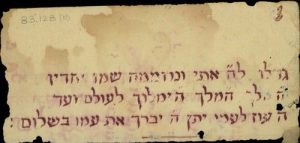 גדלו לה אתי ונרוממה שמו יחדיו
ה מלך ה מלך ה ימלוך לעולם ועד
ה עוז לעמו יתן ה יברך את עמו בשלום :